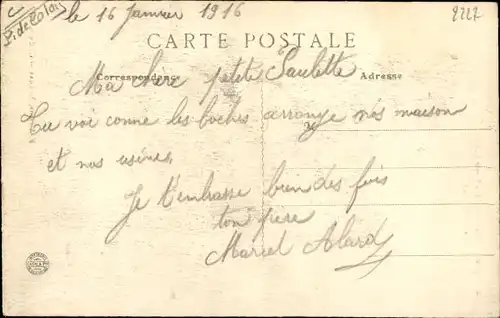 le 16 Janvier 1916
2212
CARTE POSTALE
Correspondance
Adresse
Ma chère petite Paulette
Tu voi conne les boches arrange nos maison
et nos usines,
Je t'embrasse bien des fois
ton père
Marcel Alard